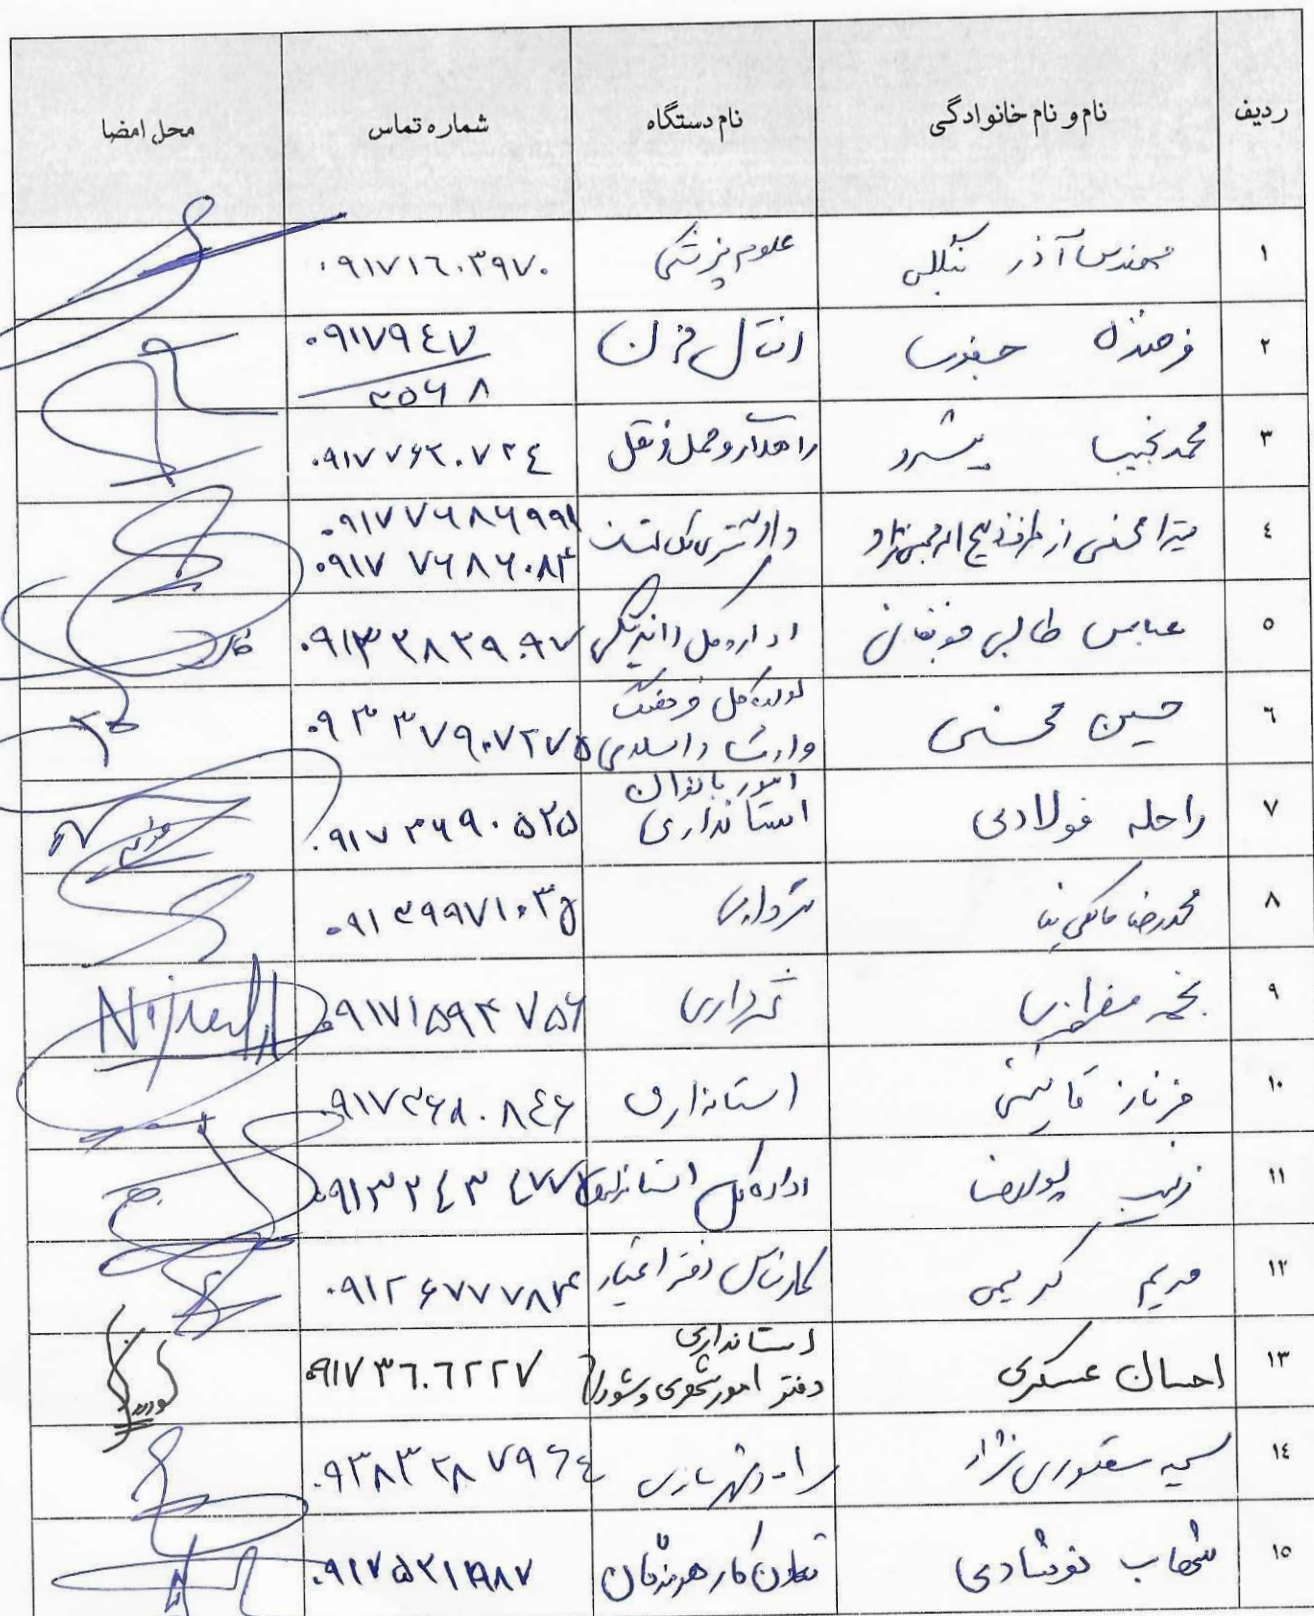 ردیف نام و نام خانوادگی نام دستگاه شماره تماس محل امضا
۱ مهندس آذر علوم پزشکی ۰۹۱۷۱۶۰۳۹۷۰
۲ فرخنده انتقال خون ۰۹۱۷۹۴۷
۳۵۶۸
۳ محمد نجیب پیشرو راهداری و حمل و نقل ۰۹۱۷۷۶۲۰۷۲۴
۴ میترا محسنی از طرف ذبیح اله رحیمی نژاد دادگستری کل استان ۰۹۱۷۷۶۸۶۹۹۱
۰۹۱۷ ۷۶۸۶۰۸۴
۵ عباس طالبی اداره کل ۰۹۱۳۲۸۲۹۰۹۷
۶ حسین محسنی اداره کل فرهنگ
و ارشاد اسلامی ۰۹۳۳۷۹۰۷۲۷۵
۷ راحله فولادی امور بانوان
استانداری ۰۹۱۷۳۶۹۰۵۲۵
۸ محمدرضا شهرداری ۰۹۱۳۹۹۷۱۰۳۵
۹ نجمه شهرداری ۰۹۱۷۱۵۹۴۷۵۶
۱۰ فرناز قائمی استانداری ۰۹۱۷۳۶۸۰۸۴۶
۱۱ زینب اداره کل استاندارد ۰۹۱۳۲۴۳
۱۲ مریم کریمی کارشناس دفتر ۰۹۱۲۶۷۷۷۸۴
۱۳ احسان عسکری استانداری
دفتر امور شهری و شوراها ۰۹۱۷۳۶۰۶۲۲۷
۱۴ سمیه نژاد راه و شهرسازی ۰۹۳۸۳۲۸۷۹۶۴
۱۵ شهاب نوشادی تعاون کار هرمزگان